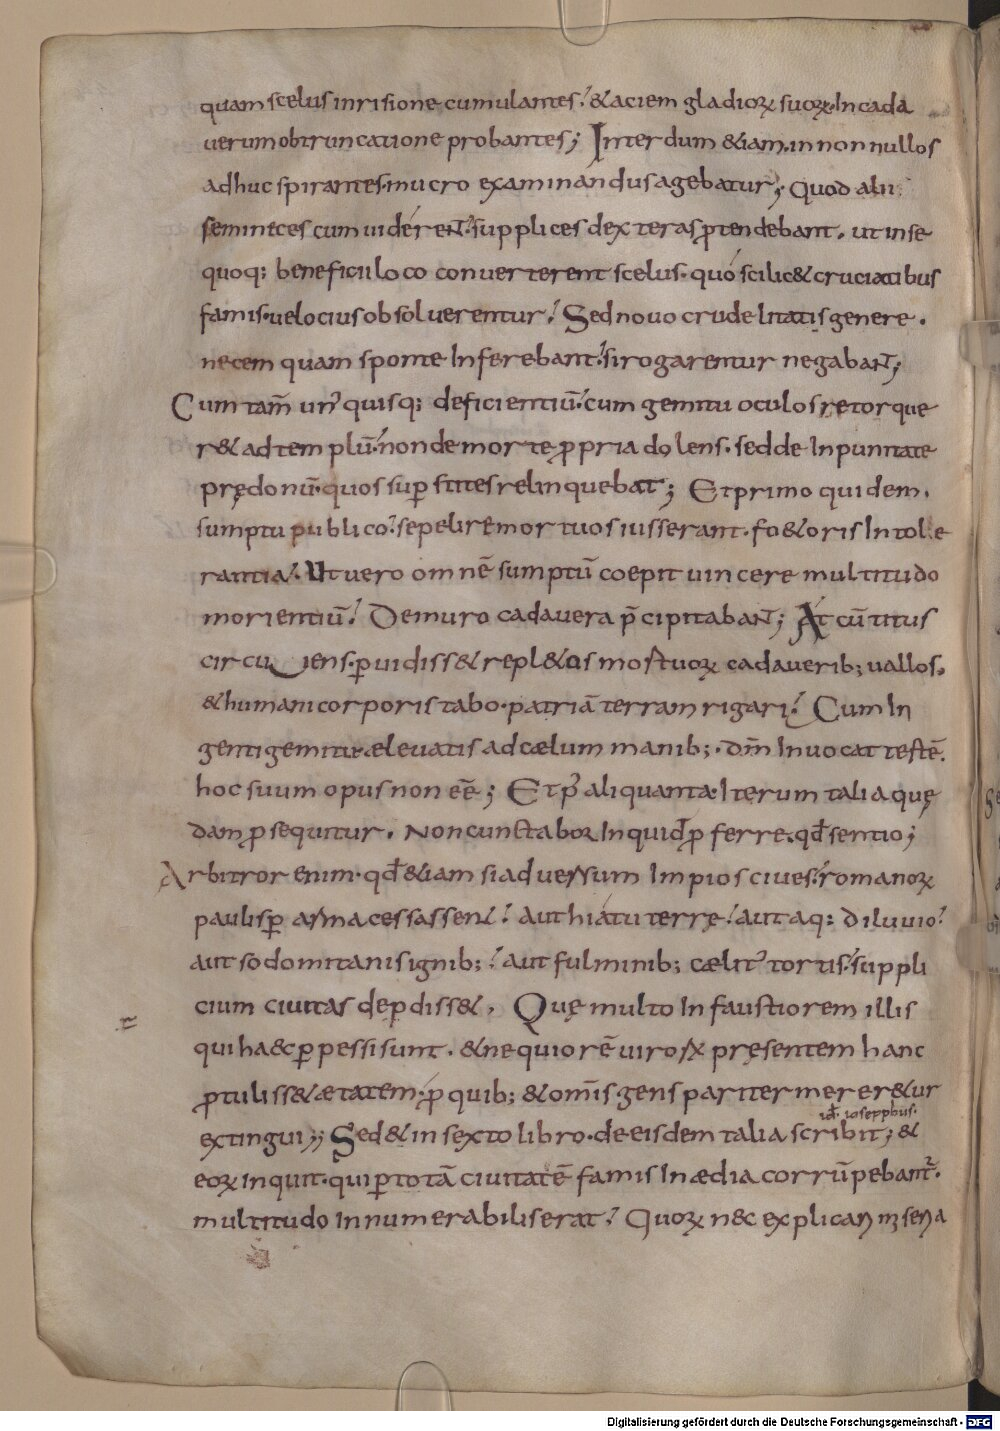 quam scelus inrisione cumulantes. &aciem gladioꝝ suoꝝ. In cada
uerum obtruncatione probantes; Interdum &iam. in non nullos
adhuc spirantes. mucro examinandus agebatur; Quod alii
semineces cum uiderent. supplices dexteras ꝓtendebant. ut in se
quoq; beneficii loco conuerterent scelus. quo scilic& cruciatibus
famis. uelocius obsoluerentur. Sed nouo crudelitatis genere.
necem quam sponte Inferebant. si rogarentur negabant;
Cum tam̅ unꝰ quisq; deficientiū. cum gemitu oculos retorque
r& ad templū. non de morte ꝓpria dolens. sed de Inpunitate
prędonū. quos sup̲stites relinquebat; Et primo quidem.
sumptu publico. sepelire mortuos iusserant. fo&oris Intolle
rantia. Ut uero omnē sumptū coepit uincere multitudo
morientiū. De muro cadauera p̄cipitabant; At cū titus
circuiens. ꝑuidiss& repl&as mortuoꝝ cadaverib; uallos.
&humani corporis tabo. patriā terram rigari. Cum In
genti gemitu. ælevatis ad cælum manib;. dm̅ Inuocat testē.
hoc suum opus non eē; Et pꝰ aliquanta. Iterum talia quę
dam ꝓsequitur. Non cunctaboꝝ Inquid ꝓferre. qd̅ sentio;
Arbitror enim. qd̅ &iam si aduersum Impios ciues. romanoꝝ
paulisꝑ arma cessassent. aut hiatu terrę. aut aq; diluuio.
aut sodomitanis ignib;. aut fulminib; cælitꝰ tortis. suppli
cium ciuitas deꝑdiss&. Quę multo Infaustiorem illis
qui ha&c ꝑpessi sunt. & nequiorē uiroꝝ pręsentem hanc
ꝓtuliss& ætatem. ꝓ quib; & om̅is. gens pariter merer&ur
id̅. iosepphus.
extingui; Sed & in sexto libro. de eisdem talia scribit; &
eoꝝ inquit. qui ꝑ totā ciuitatē famis Inædia corrūpebant᷑.
multitudo Innumerabilis erat. Quoꝝ nec explicari miseria
Digitalisierung gefördert durch die Deutsche Forschungsgemeinschaft - DFG